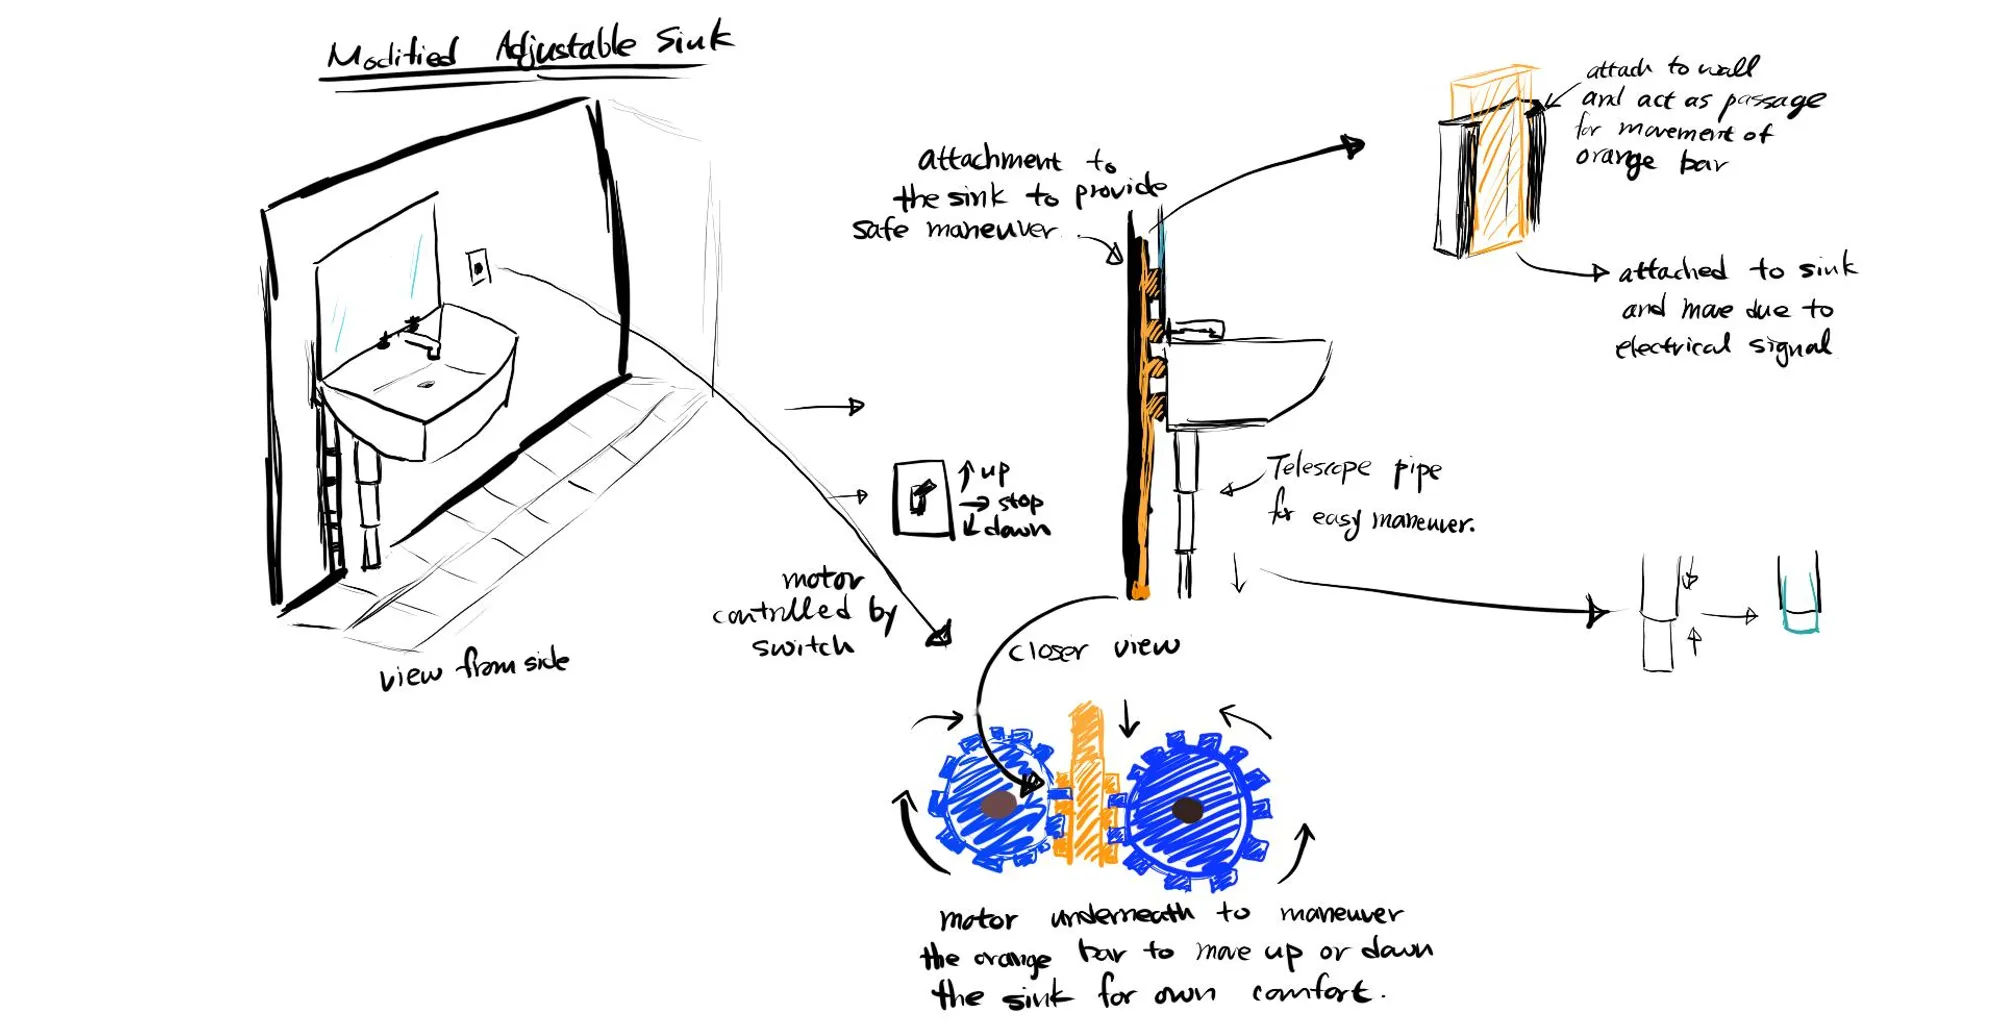 Modified Adjustable Sink
attachment to
the sink to provide
safe maneuver
attach to wall
and act as passage
for movement of
orange bar
attached to sink
and move due to
electrical signal
up
stop
down
Telescope pipe
for easy maneuver.
motor
controlled by
switch
closer view
view from side
motor underneath to maneuver
the orange bar to move up or down
the sink for own comfort.